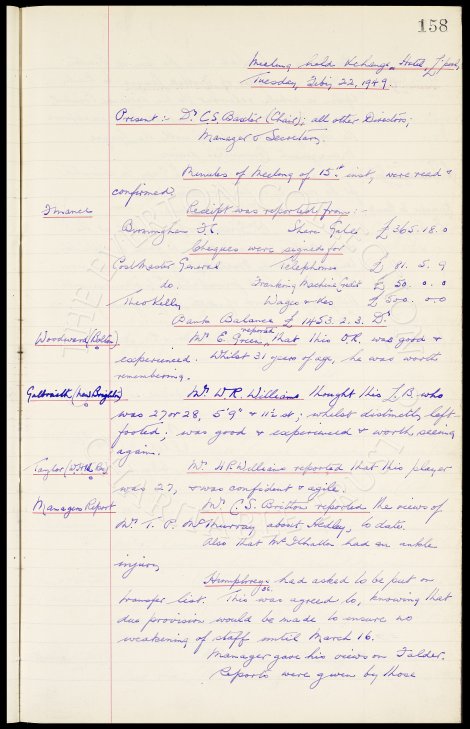 158
Meeting held Xchange Hotel, L'pool,
Tuesday, Feby 22, 1949.
Present :- Dr C.S. Baxter (Chair); all other Directors;
Manager & Secretary.
Minutes of Meeting of 15th inst, were read &
confirmed.
Finance
Receipt was reported from :-
Birmingham F.C. Share Gate £365.18.0
Cheques were signed for
Postmaster General Telephones £ 81. 5. 9
do. Franking Machine Credit £ 50. 0. 0
Theo Kelly Wages & £500. 0.0
Bank Balance £ 1453. 2. 3. Dr
Woodward (Bolton)
Mr E. Green, reported that this O.R. was good &
experienced. Whilst 31 years of age, he was worth
remembering.
Galbraith (New Brighton)
Mr W.R. Williams thought this L.B. who
was 27 or 28, 5'9" & 11½ st; whilst distinctly left
footed; was good & experienced & worth seeing
again.
Taylor
Mr W.R. Williams reported that this player
was 27, & was confident & agile.
Managers Report
Mr C.S. Britton reported the views of
Mr T. P. McMurray about Hedley, to date.
Also that McIlhatton had an ankle
injury
Humphreys had asked to be put on
transfer list. This was agreed to, knowing that
due provision would be made to ensure no
weakening of staff until March 16.
Manager gave his views on Falder.
Reports were given by those
THE EVERTON COLLECTION